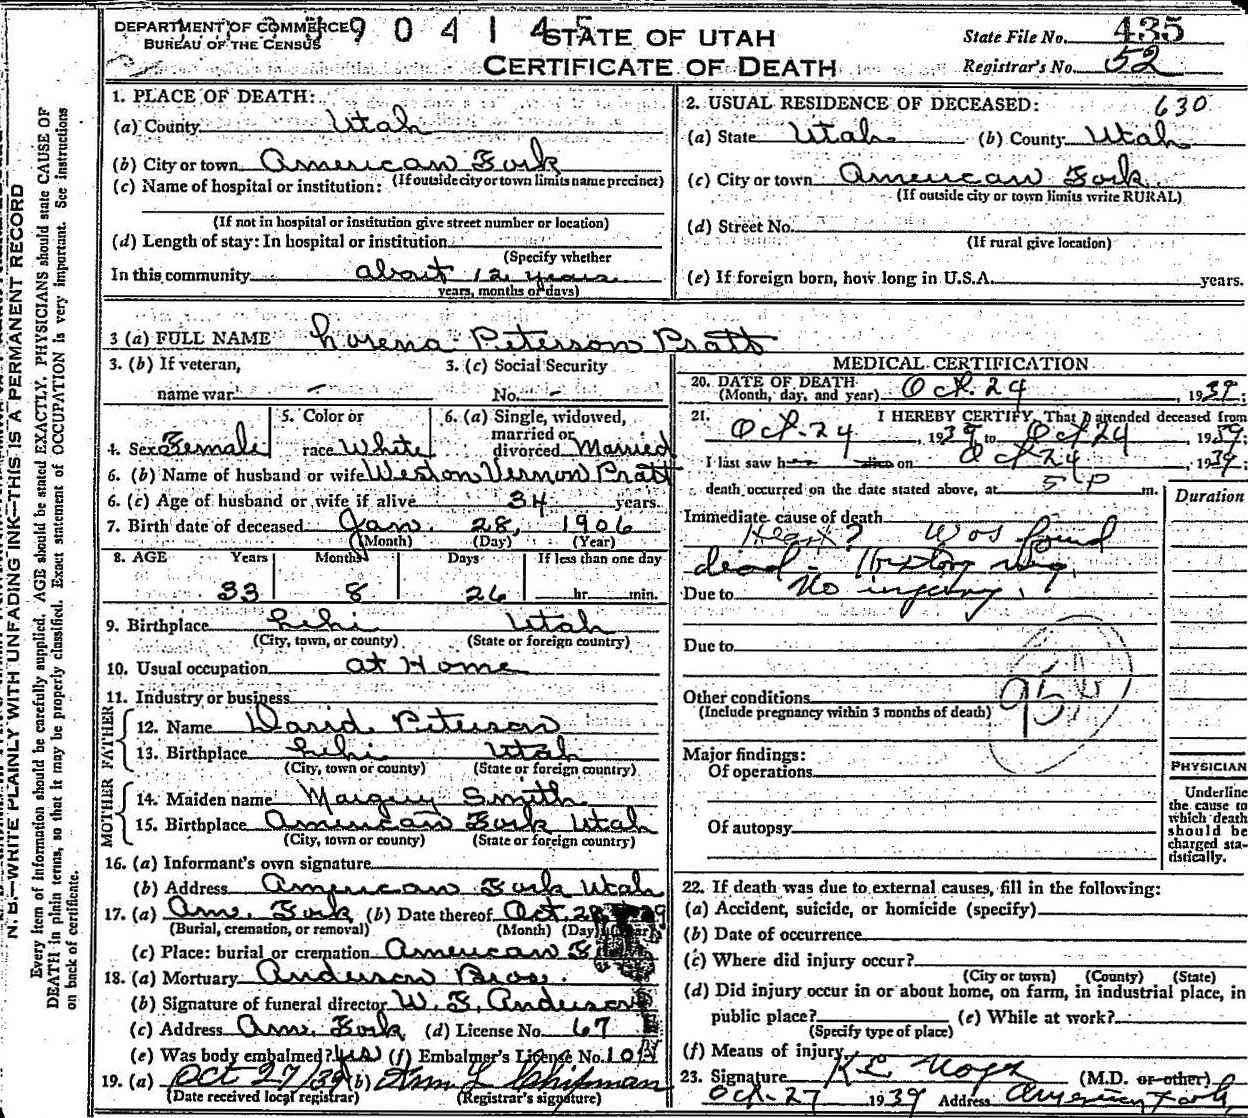 DEPARTMENT OF COMMERCE
BUREAU OF THE CENSUS
390414 5
STATE OF UTAH
CERTIFICATE OF DEATH
State File No. 435
Registrar's No. 52
N.B.—WRITE PLAINLY WITH UNFADING INK—THIS IS A PERMANENT RECORD
Every item of information should be carefully supplied. AGE should be stated EXACTLY. PHYSICIANS should state CAUSE OF
DEATH in plain terms, so that it may be properly classified. Exact statement of OCCUPATION is very important. See instructions
on back of certificate.
1. PLACE OF DEATH:
(a) County Utah
(b) City or town American Fork
(If outside city or town limits name precinct)
(c) Name of hospital or institution:
(If not in hospital or institution give street number or location)
(d) Length of stay: In hospital or institution
(Specify whether
In this community about 12 years
years, months or days)
2. USUAL RESIDENCE OF DECEASED: 630
(a) State Utah (b) County Utah
(c) City or town American Fork
(If outside city or town limits write RURAL)
(d) Street No.
(If rural give location)
(e) If foreign born, how long in U.S.A. years.
3 (a) FULL NAME Lorena Peterson Pratt
3. (b) If veteran,
name war –
3. (c) Social Security
No. –
4. Sex Female
5. Color or
race White
6. (a) Single, widowed,
married or
divorced Married
6. (b) Name of husband or wife Weston Vernon Pratt
6. (c) Age of husband or wife if alive 34 years.
7. Birth date of deceased Jan. 28, 1906
(Month) (Day) (Year)
8. AGE Years Months Days If less than one day
33 8 26 hr. min.
9. Birthplace Lehi Utah
(City, town, or county) (State or foreign country)
10. Usual occupation at Home
11. Industry or business
FATHER
12. Name David Peterson
13. Birthplace Lehi Utah
(City, town or county) (State or foreign country)
MOTHER
14. Maiden name Smith
15. Birthplace American Fork Utah
(City, town or county) (State or foreign country)
16. (a) Informant's own signature
(b) Address American Fork Utah
17. (a) Am. Fork (b) Date thereof Oct. 28
(Burial, cremation, or removal) (Month) (Day) (Year)
(c) Place: burial or cremation American F
18. (a) Mortuary Anderson Bros.
(b) Signature of funeral director W. F. Anderson
(c) Address Am. Fork (d) License No. 67
(e) Was body embalmed? yes (f) Embalmer's License No. 101
19. (a) Oct 27/39 (b) Ann L Chipman
(Date received local registrar) (Registrar's signature)
MEDICAL CERTIFICATION
20. DATE OF DEATH
(Month, day, and year) Oct. 24, 1939;
21. I HEREBY CERTIFY, That I attended deceased from
Oct. 24, 1939 to Oct 24, 1939;
I last saw her alive on Oct 24, 1939;
death occurred on the date stated above, at 5 P m.
Duration
Immediate cause of death
Heart? Was found
dead –
Due to No injury.
Due to
Other conditions
(Include pregnancy within 3 months of death)
95
Major findings:
Of operations
Of autopsy
PHYSICIAN
Underline
the cause to
which death
should be
charged sta-
tistically.
22. If death was due to external causes, fill in the following:
(a) Accident, suicide, or homicide (specify)
(b) Date of occurrence
(c) Where did injury occur?
(City or town) (County) (State)
(d) Did injury occur in or about home, on farm, in industrial place, in
public place? (e) While at work?
(Specify type of place)
(f) Means of injury
23. Signature (M.D. or other)
Oct-27 1939 Address American Fork,